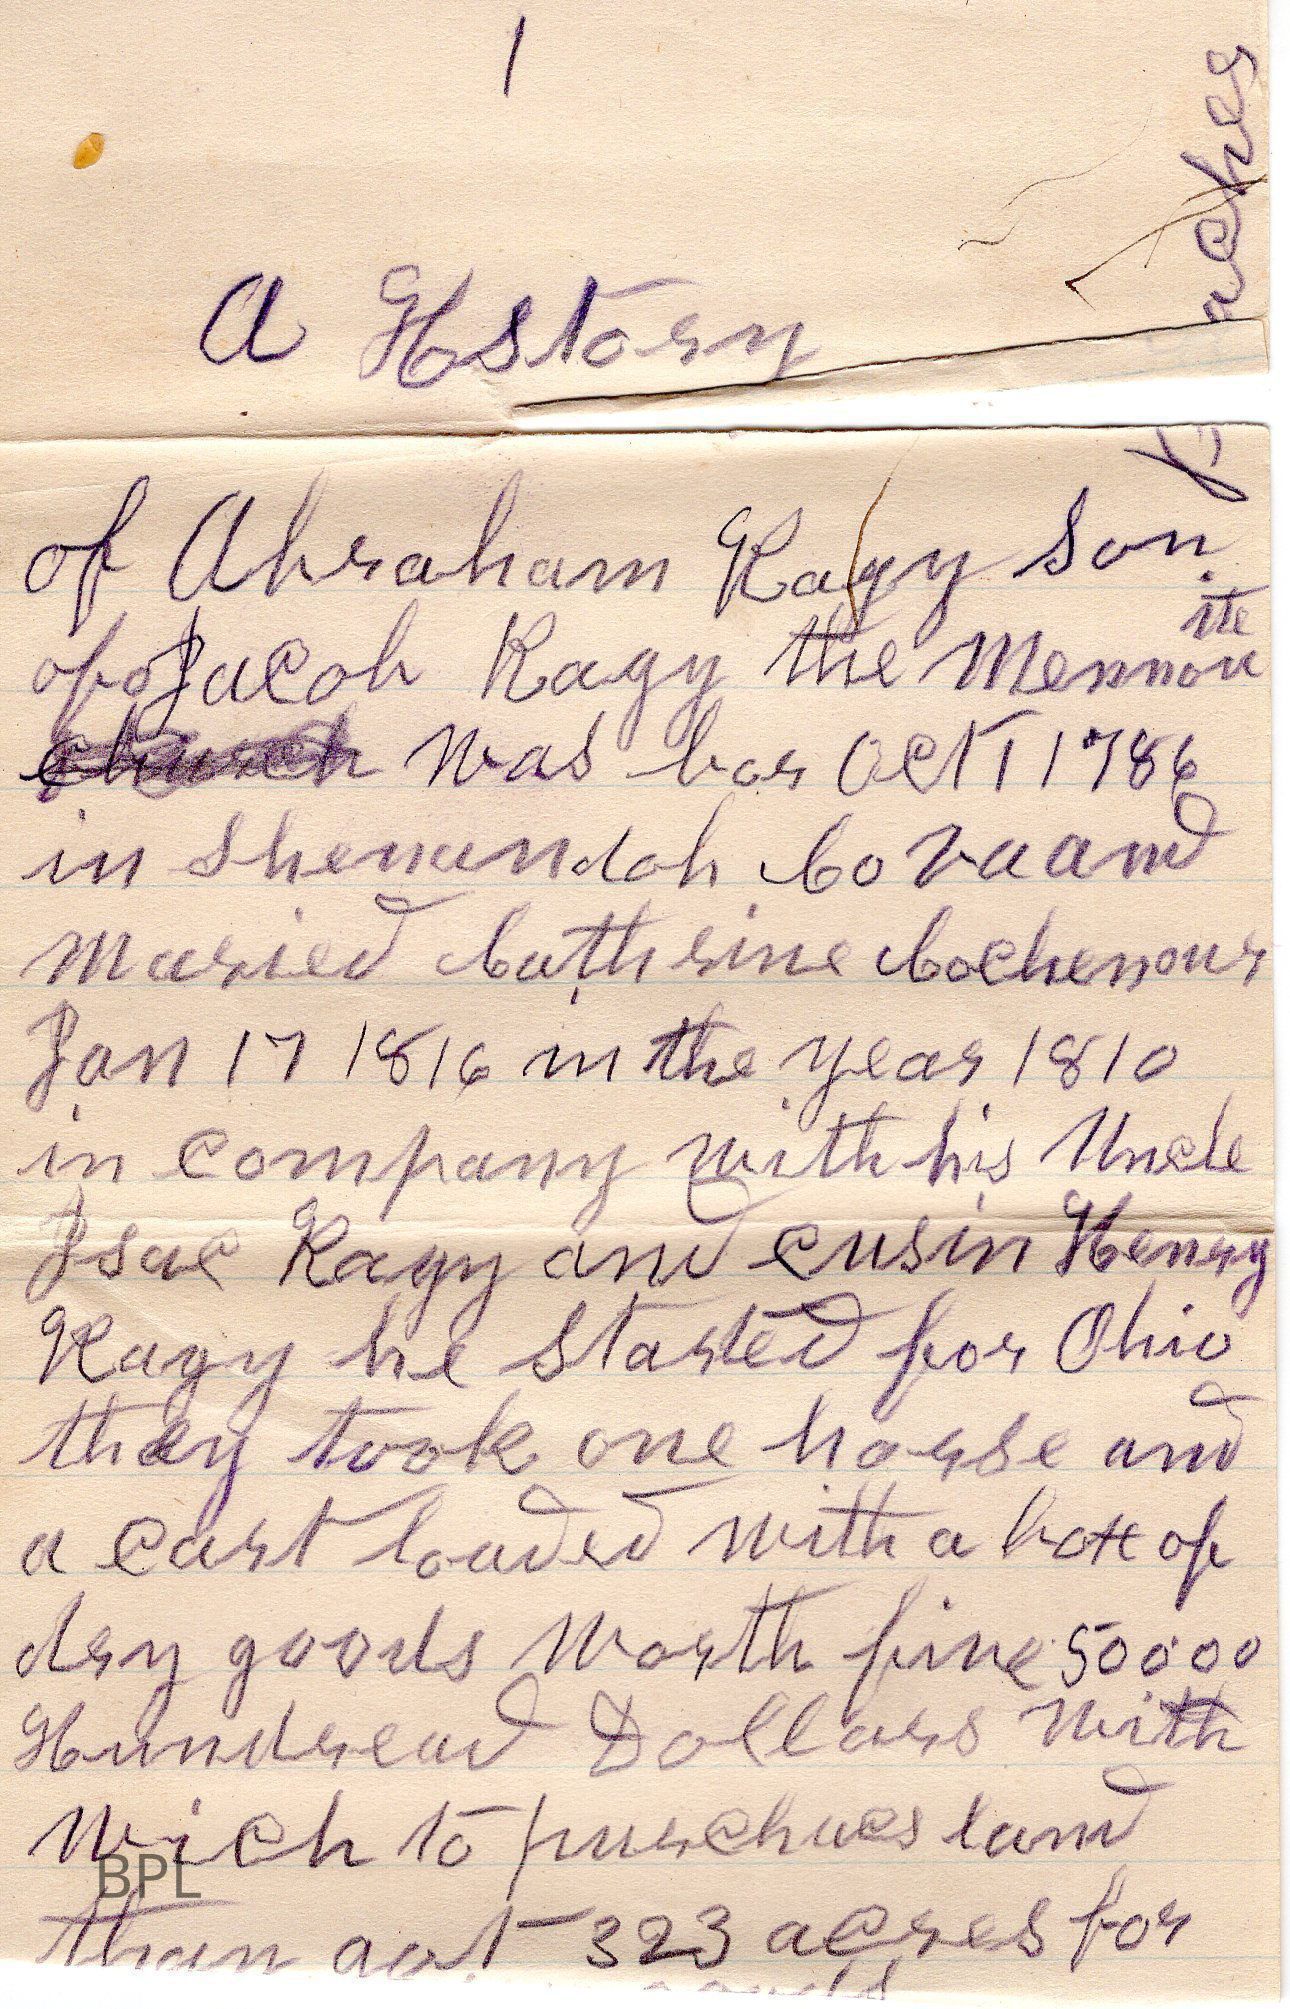 1
A Hstory
aches
of Abraham Kagy Son
of Jacob Kagy the Mennon
ite
church was bor Oct 1 1786
in Shenandoh Co Va and
Maried Cathrine Cochenour
Jan 17 1816 in the year 1810
in company with his Uncle
Isac Kagy and cusin Henry
Kagy he Started for Ohio
they took one horse and
a cart loaded with a box of
dry goods Worth five 50000
Hundread Dollars With
Wich to purchues land
than got 323 acres for
BPL